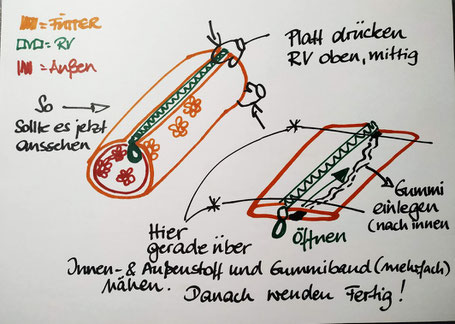 = FUTTER
= RV
= Außen
Platt drücken
RV oben, mittig
So
Sollte es jetzt
aussehen
Gummi
einlegen
(nach innen
Öffnen
Hier
gerade über
Innen- & Außenstoff und Gummiband (mehrfach)
nähen. Danach wenden Fertig!